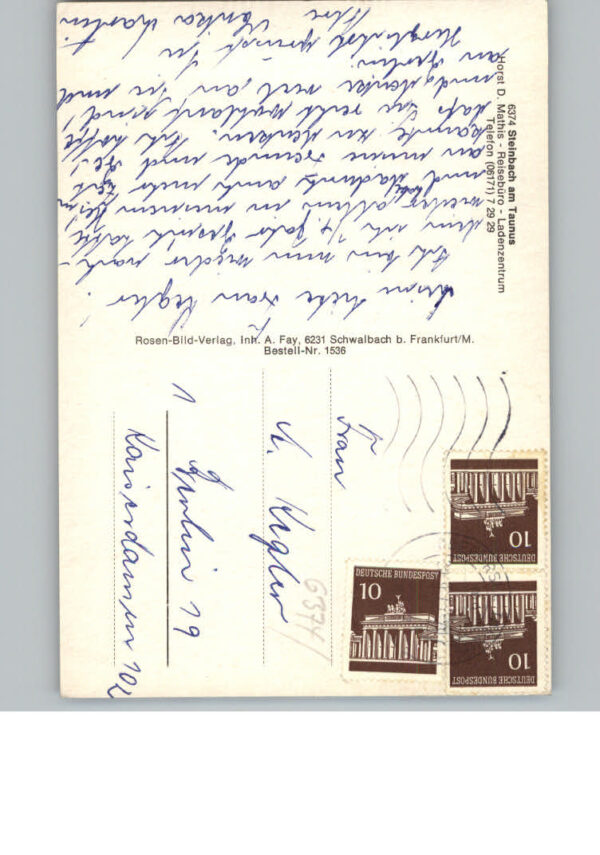 6374 Steinbach am Taunus
Horst D. Mathis - Reisebüro - Ladenzentrum
Telefon (06171) 7 29 29
Meine liebe Frau Kegler!
Ich bin nun wieder nach-
dem ich 1/4 Jahr
weiter allein in meinem Heim
und dadurch auch mehr Zeit
an meine Freunde und Be-
kannte zu denken. Ich hoffe
daß Sie recht wohlauf sind,
und denke viel an Sie und
an Berlin.
Herzlichst grüßt Sie
Ihre Martin
Rosen-Bild-Verlag, Inh. A. Fay, 6231 Schwalbach b. Frankfurt/M.
Bestell-Nr. 1536
Frau
K. Kegler
1 Berlin 19
Kaiserdamm 102
6374
DEUTSCHE BUNDESPOST
10
DEUTSCHE BUNDESPOST
10
DEUTSCHE BUNDESPOST
10